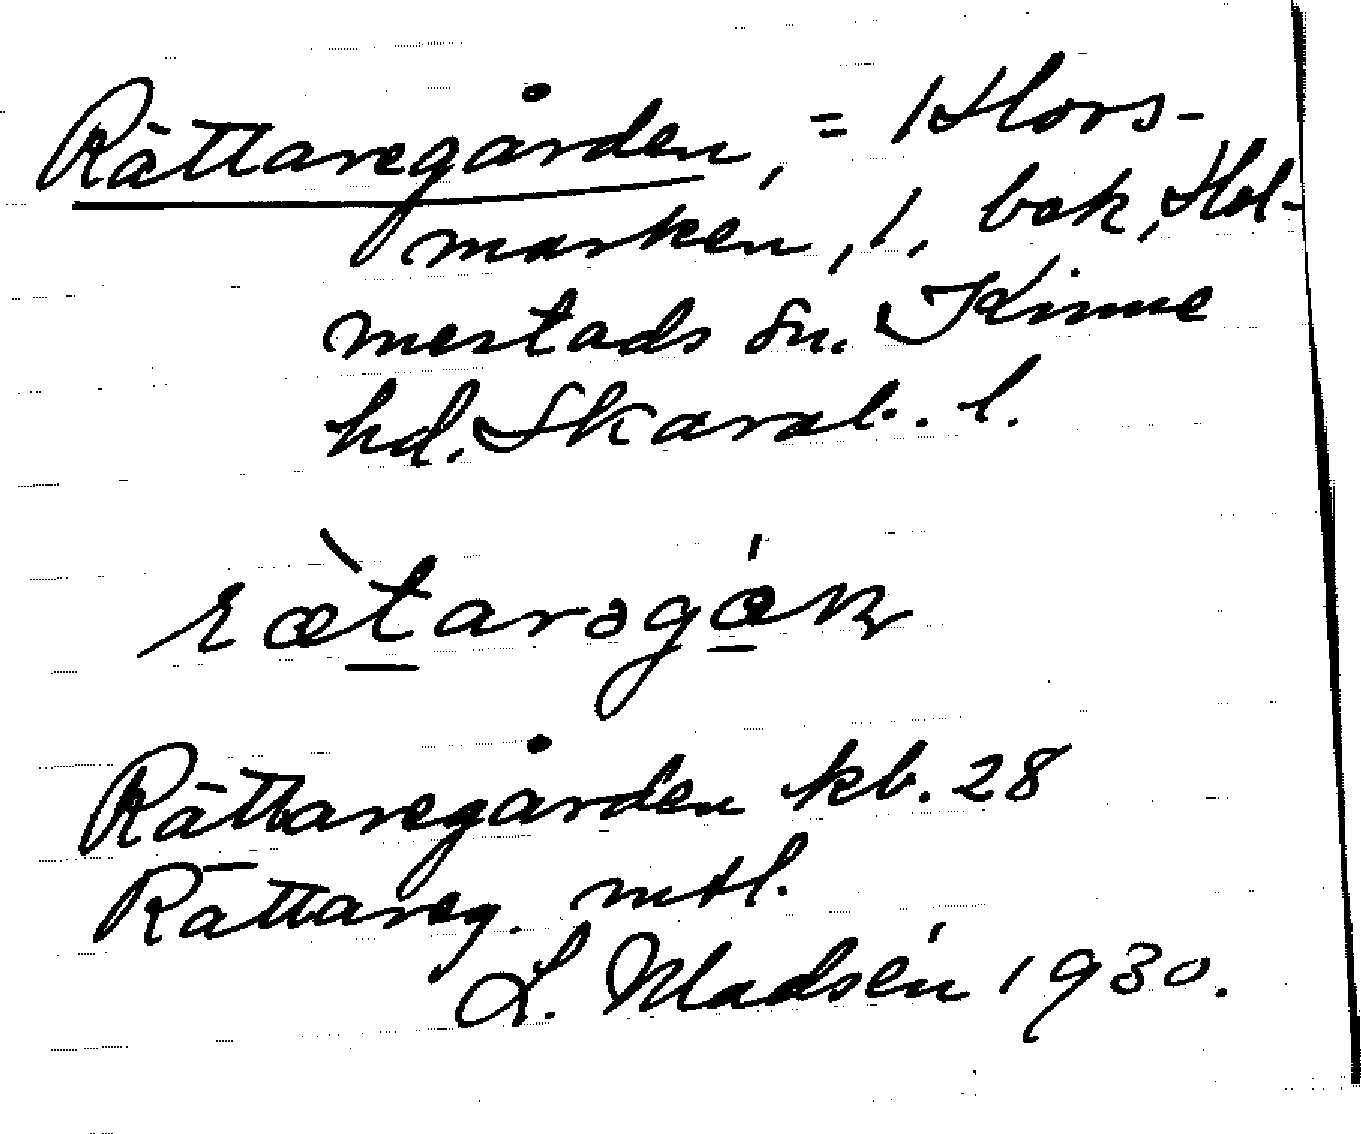 Rättaregården, = 1 Hors-
marken, 1, bak, Hol-
mestads sn. Kinne
hd. Skarab. l.
Rättaregården kb. 28
Rättareg. mtl.
L. Madsén 1930.